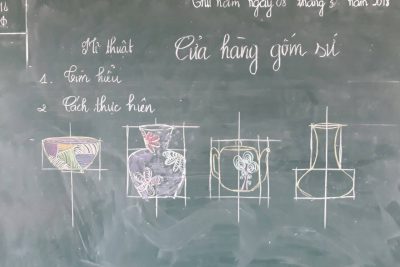 Thứ năm ngày 03 tháng 5 năm 2018
Mĩ thuật
Cửa hàng gốm sứ
1. Tìm hiểu
2 Cách thực hiện